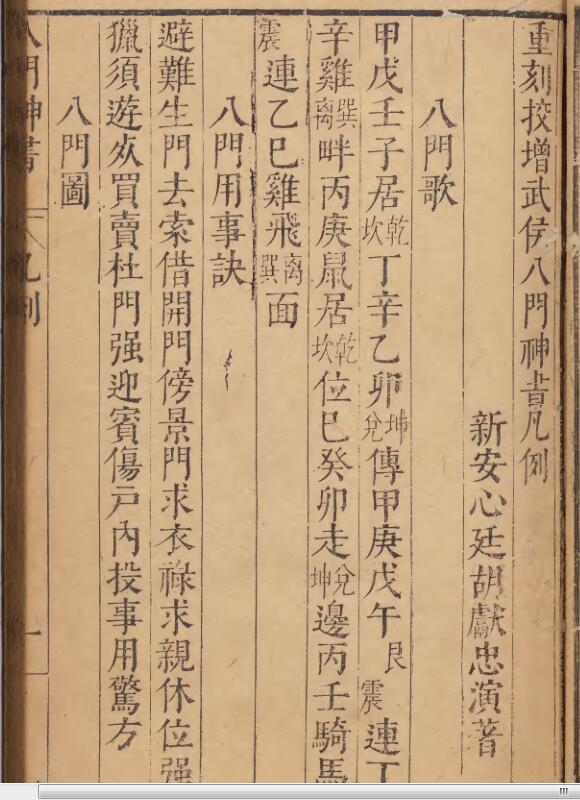 重刻挍增武侯八門神書凡例
新安心廷胡獻忠演著
八門歌
甲戊壬子居乾坎丁辛乙卯坤兌傳甲庚戊午艮震連丁
辛雞巽离畔丙庚鼠居乾坎位巳癸卯走兌坤邊丙壬騎馬
震連乙巳雞飛离巽面
八門用事訣
避難生門去索借開門傍景門求衣祿求親休位强
獵須遊㱕買賣杜門强迎賓傷戸內投事用驚方
八門圖
八門神書 凡例 一